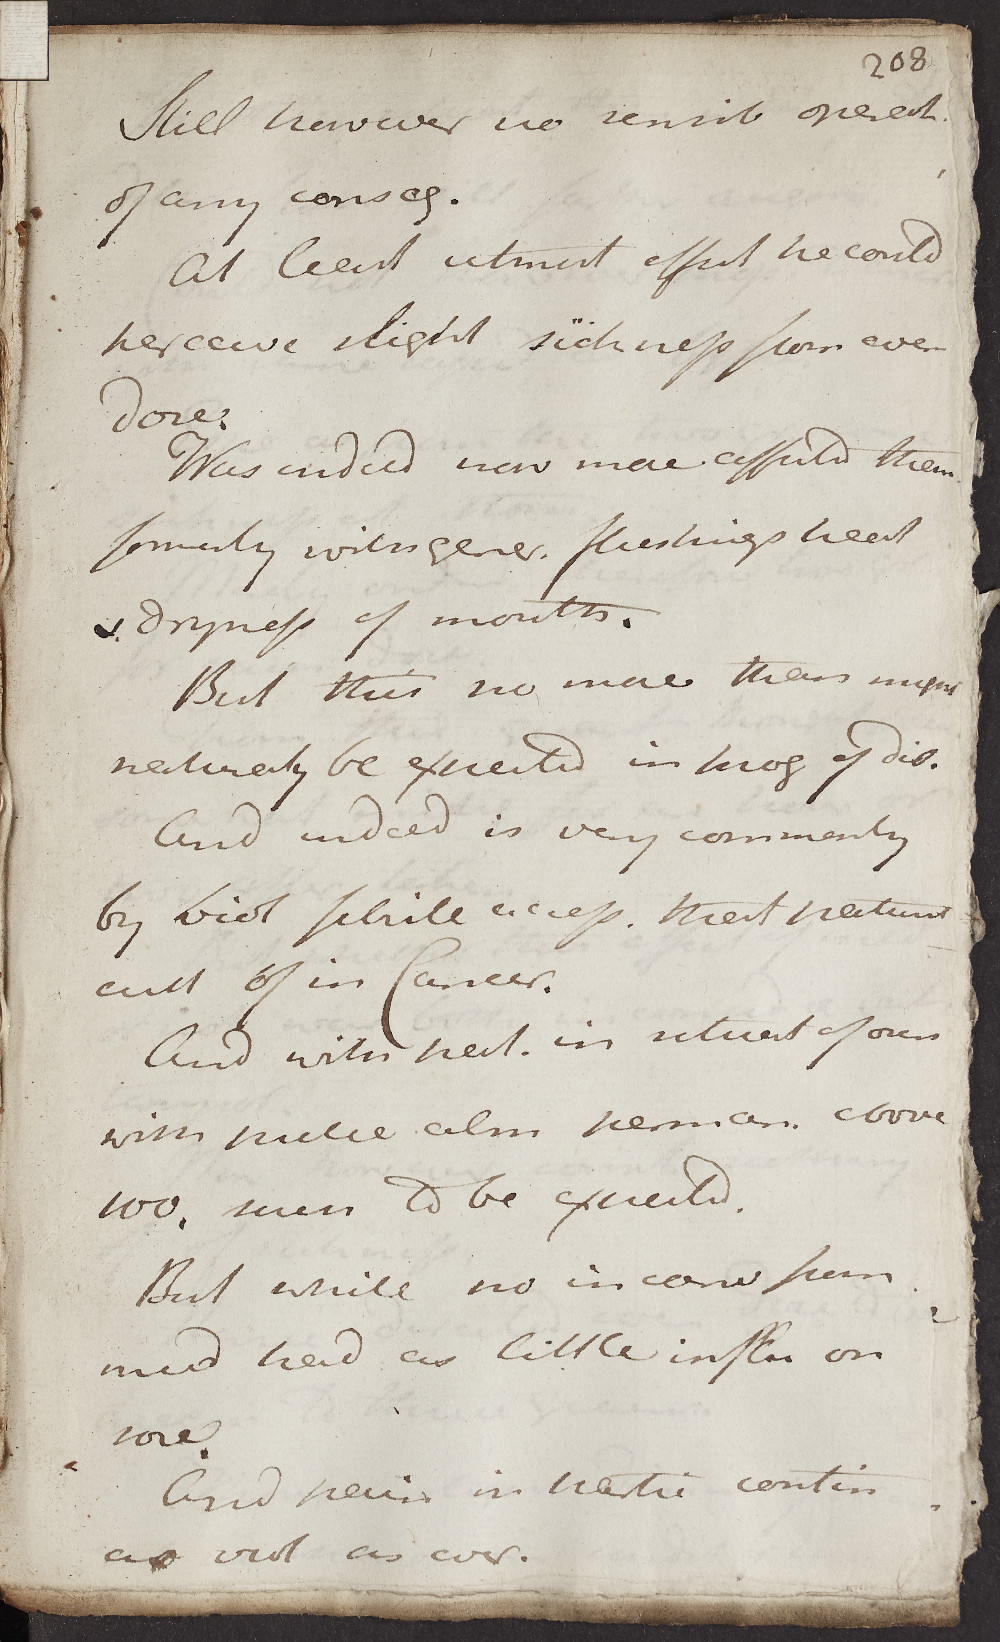 208
Still however no sensib operat.
of any conseq.
At least utmost effect he could
perceive slight sickness from even
dose.
Was indeed now more affected than
formerly with gener. flushings heat
& dryness of mouth.
But this no more than might
naturally be expected in prog of dis.
And indeed is very commonly
by viol febrile access. that patient
cutt of in Cancer.
And with pat. in situat of ours
with pulse alm perman. above
100. seem to be expected.
But while no inconv from
med had as little influ on
sore.
And pain in partic contin
as viol as ever.